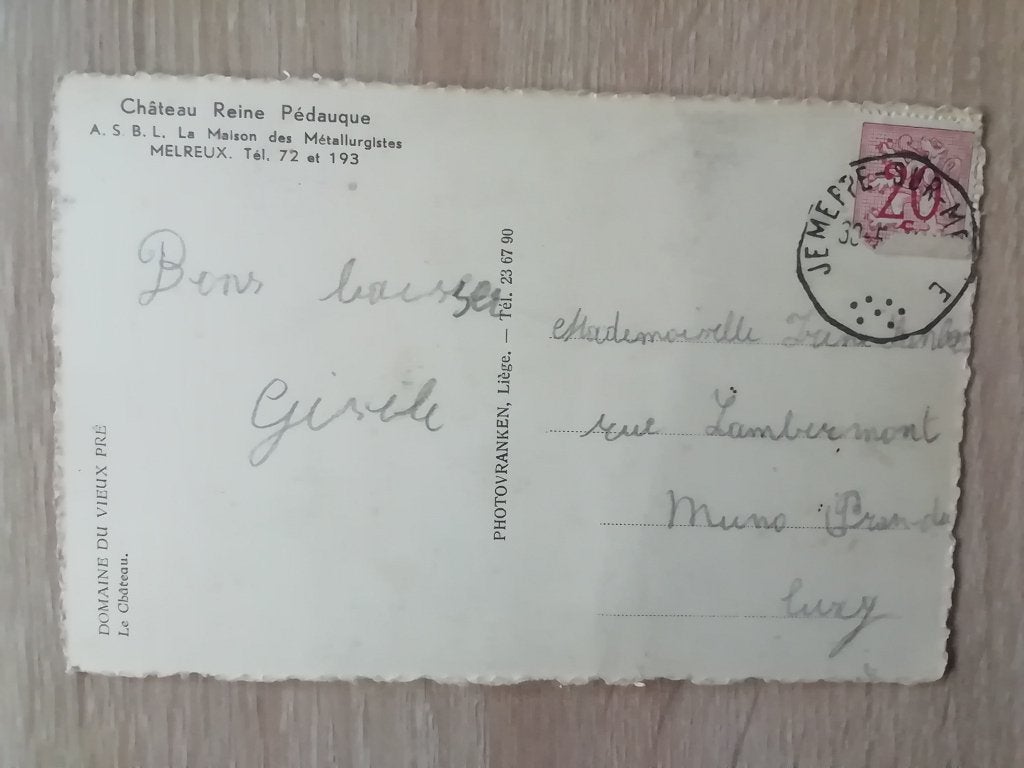 Château Reine Pédauque
A. S. B. L. La Maison des Métallurgistes
MELREUX. Tél. 72 et 193
Bons baisers
Gisèle
DOMAINE DU VIEUX PRÉ
Le Château.
PHOTOVRANKEN, Liège. — Tél. 23 67 90
20
JEMEPPE-SUR-ME
E
Mademoiselle
rue Lambermont
Muno
luxg